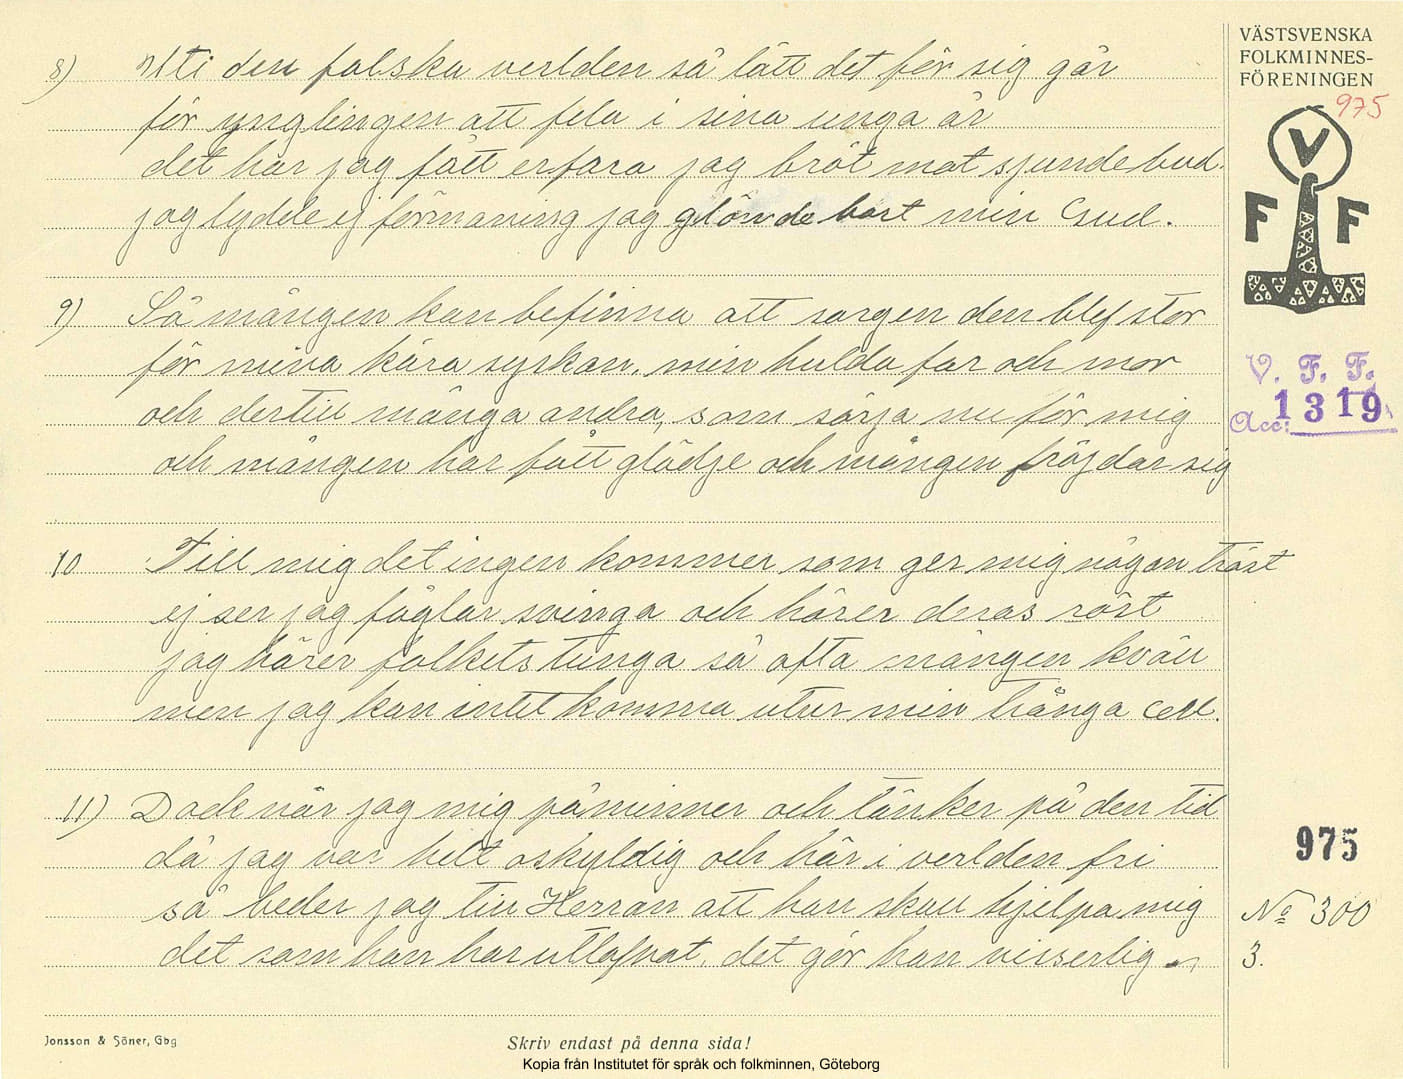 VÄSTSVENSKA
FOLKMINNES-
FÖRENINGEN
975
V
F F
V. F. F.
Acc: 1319
8) Uti den falska verlden så lätt det för sig går
för ynglingen att fela i sina unga år
det har jag fått erfara jag bröt mot sjunde bud.
jag lydde ej förmaning jag glömde bort min Gud.
9) Så mången kan befinna att sorgen den blef stor
för mina kära syskon, min hulda far och mor
och dertill många andra, som sörja nu för mig
och mången har fått glädje och mången fröjdar sig
10 Till mig det ingen kommer som ger mig någon tröst
ej ser jag fåglar svinga och hörer deras röst
jag hörer folkets tunga så ofta mången kväll
men jag kan intet komma utur min trånga cell.
11) Dock när jag mig påminner och tänker på den tid
då jag var helt oskyldig och här i verlden fri
så beder jag till Herran att han skall hjelpa mig
det som han har utlofvat, det gör han visserlig
975
No 300
3.
Jonsson & Söner, Gbg
Skriv endast på denna sida!
Kopia från Institutet för språk och folkminnen, Göteborg